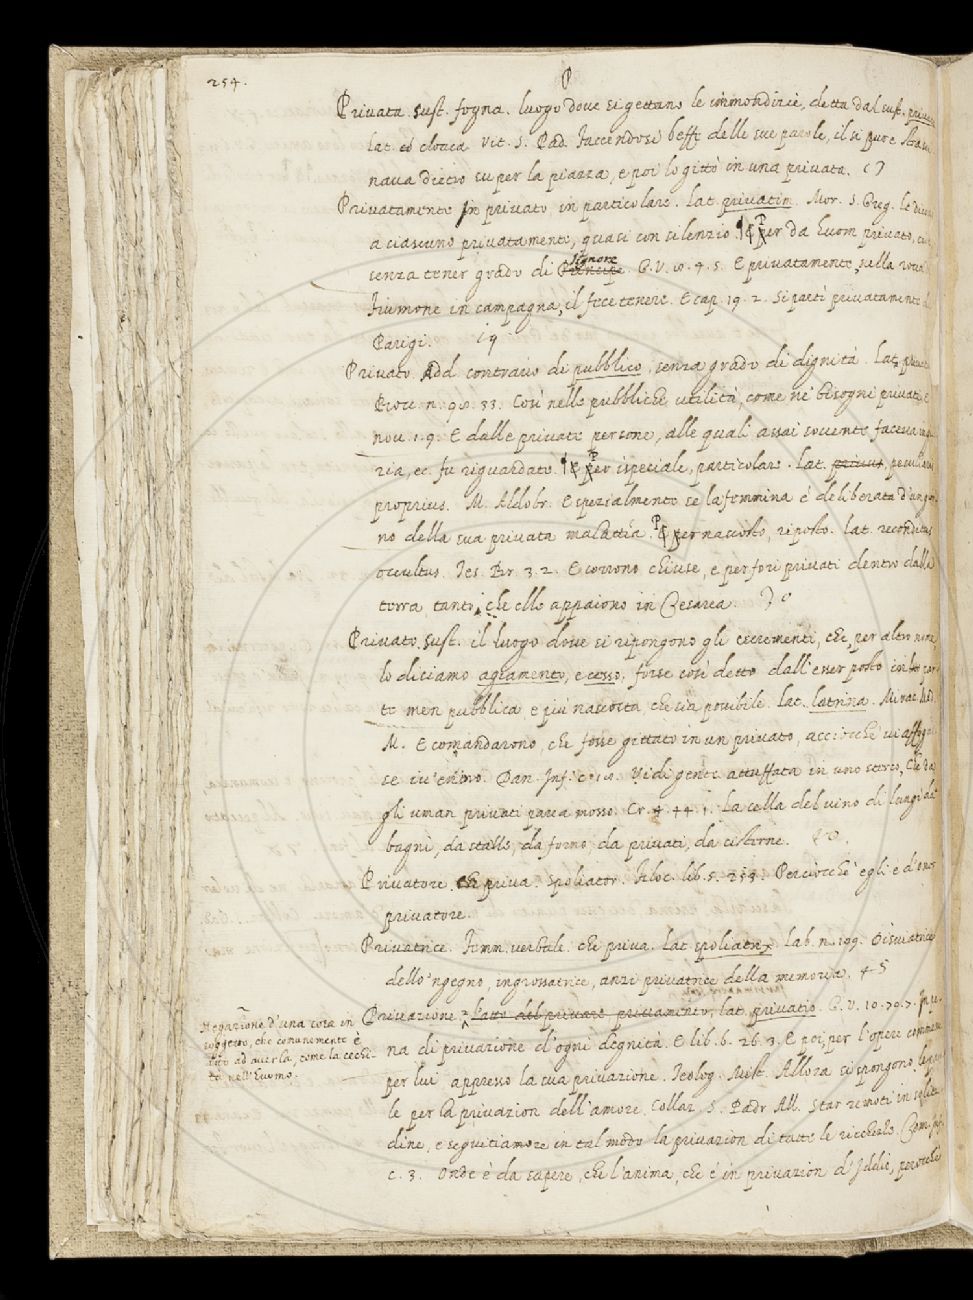 254.
P
Privata. sust. fogna. luogo doue si gettano le immondizie, detta dal sust. 
lat. cloaca Vit. S. Pad. Faccendosi beffe delle sue parole, il si pure stras
naua dietro su per la piazza, e poi lo gittò in una privata.
Privatamente In privato, in particolare. Lat. privatim. Mor. S. Greg. le
a ciascuno privatamente, quasi con silenzio. ¶ Per da huom privato,
Signore
senza tener grado di Principe G. V. 10. 4. 5. E privatamente, nella
Fiumone in campagna, il fece tenere. E cap. 19. 2. Si partì privatamente
Parigi. 19
Privato. Add. contrario di pubblico, senza grado di dignità. Lat.
n. 90. 33. Così nelle pubbliche utilità, come ne' bisogni privati,
nou. 1. 9. E dalle private persone, alle quali assai sovente faceua
ria, ec. fu riguardato. ¶ Per ispeciale, particolare. Lat. privus,
proprius. M. Aldobr. E spezialmente se la femmina è deliberata
no della sua privata malattia. ¶ Per nascosto, riposto. Lat. reconditus
occultus. Tes. Br. 3. 2. E corrono chiuse, e per fori privati dentro dalla
terra tanto, che elle appaiono in Cesarea.
Privato sust. il luogo dove si ripongono gli escrementi, che, per altro nome
lo diciamo agiamento, e cesso, forse così detto dall'esser posto in
te men pubblica e più nascosta, che sia possibile. Lat. latrina. Mirac. Mad.
M. E comandarono, che fosse gittato in un privato, acciocchè vi
se iu' entro. Dan. Inf. c. 18. Vidi gente attuffata in uno sterco, Che da
gli uman privati parea mosso. Cr. 4. 44. 1. La cella del vino di lungi da
bagni, da stalle, da forno, da privati, da cisterne.
Privatore. Che priva. Spoliator. Filoc. lib. 5. 253. Perciocchè egli è d'onor
privatore.
Privatrice. Femm. verbale. che priva. Lat. spoliatrix Lab. n. 199. Disviatrice
dello 'ngegno, ingrossatrice, anzi privatrice della memoria.
Negazione d'una cosa in
soggetto, che comunemente è
atto ad averla, come la ceci-
tà nell'huomo.
Privazione. L'atto del privare privamento, lat. privatio. G. V. 10. 70. 7. In pe-
na di privazione d'ogni degnità. E lib. 6. 26. 3. E poi, per l'opere commesse
per lui appresso la sua privazione. Teolog. Mist. Allora si spongono
le per la privazion dell'amore. Collaz. S. Padr. All. Star remoti in
dine, e seguitiamo in tal modo la privazion di tutte le ricchezze.
c. 3. Onde è da sapere, che l'anima, che è in privazion d'Iddio, perocchè